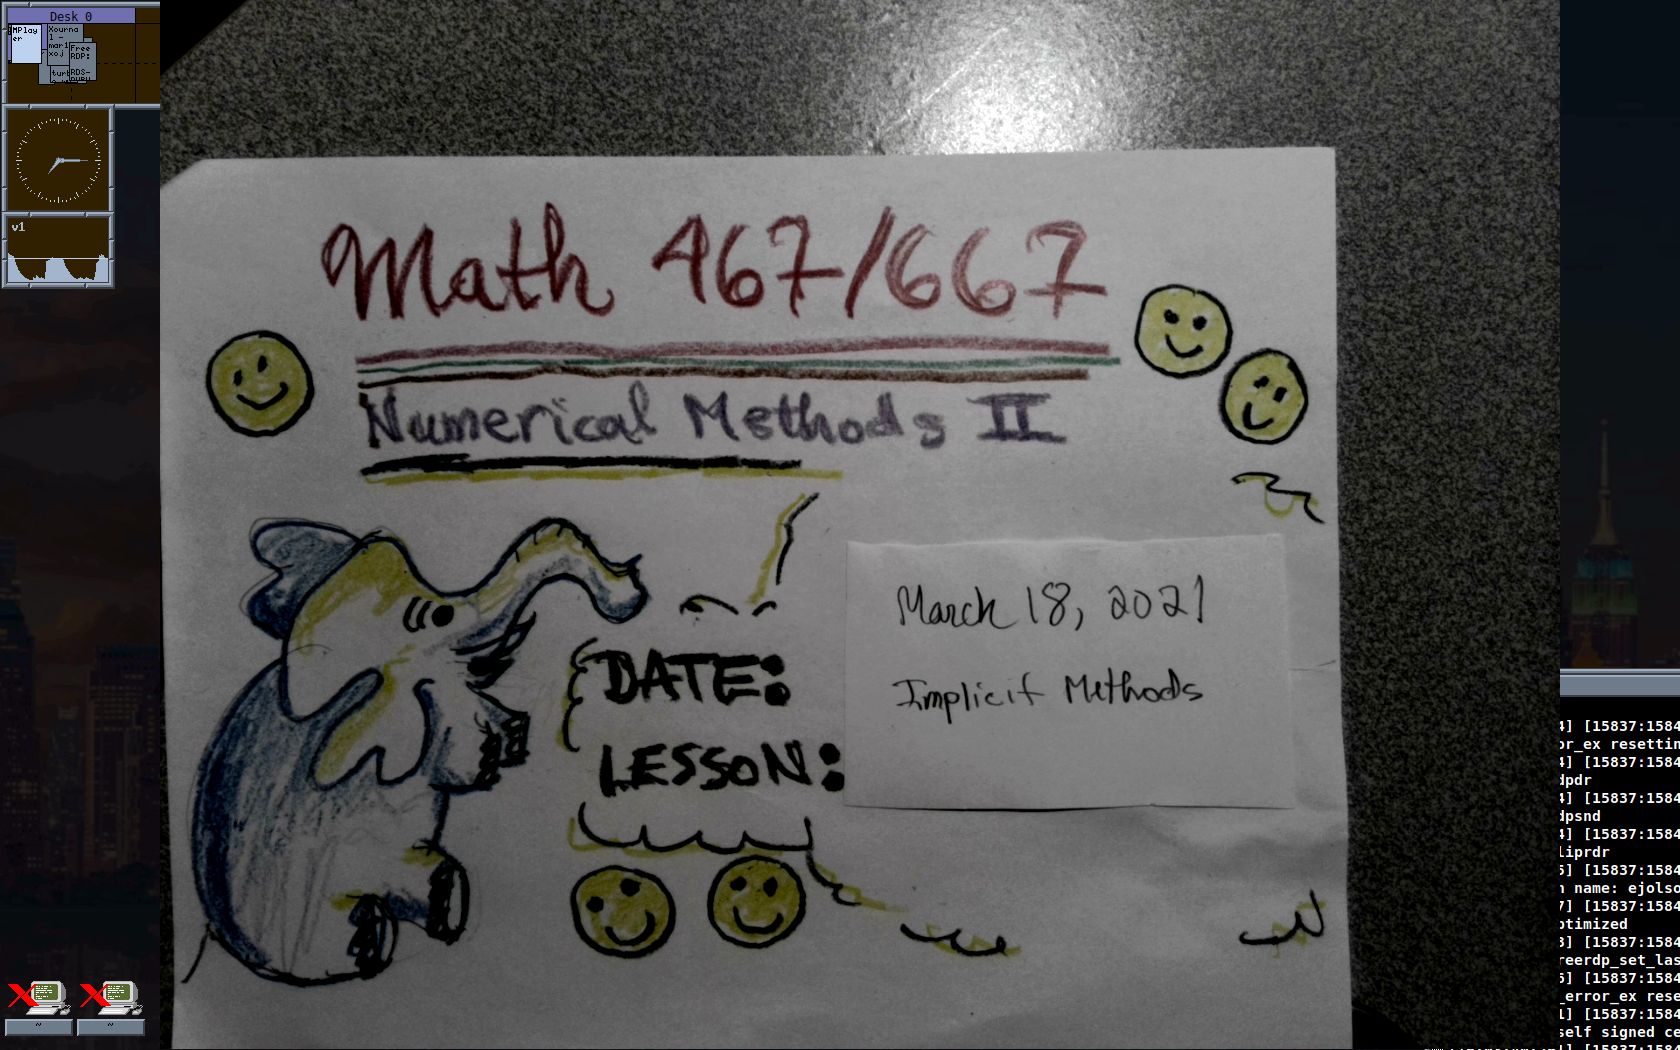 Desk 0
MPlay
er
Xourna
l -
mar1
xoj
Free
RDP:
RDS-
turb
v1
Math 467/667
Numerical Methods II
DATE:
March 18, 2021
LESSON:
Implicit Methods
4] [15837:1584
or_ex resettin
4] [15837:1584
dpdr
4] [15837:1584
dpsnd
4] [15837:1584
liprdr
5] [15837:1584
n name: ejolso
7] [15837:1584
ptimized
3] [15837:1584
reerdp_set_las
5] [15837:1584
_error_ex rese
1] [15837:1584
self signed ce
~
~